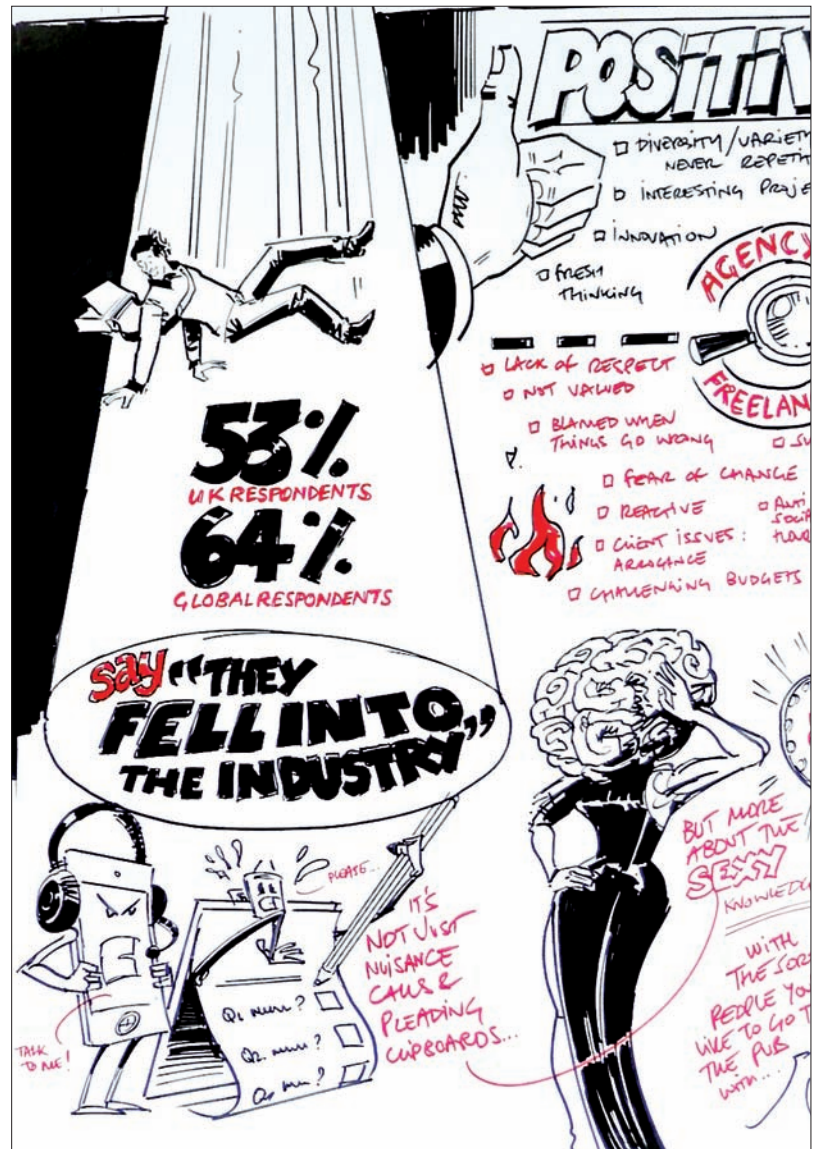 POSITIV
DIVERSITY/VARIETY
NEVER REPETIT
INTERESTING PROJE
INNOVATION
FRESH
THINKING
AGENCY
FREELAN
LACK OF RESPECT
NOT VALUED
BLAMED WHEN
THINGS GO WRONG
FEAR OF CHANGE
REACTIVE
CLIENT ISSUES:
ARROGANCE
CHALLENGING BUDGETS
ANTI
SOCIA
HOUR
53%
UK RESPONDENTS
64%
GLOBAL RESPONDENTS
say "THEY
FELL INTO
THE INDUSTRY"
TALK
TO ME!
PLEASE...
Q1 ?
Q2. ?
Q3 ?
IT'S
NOT JUST
NUISANCE
CALLS &
PLEADING
CLIPBOARDS...
BUT MORE
ABOUT THE
SEXY
KNOWLEDG
WITH
THE SORT
PEOPLE YOU
LIKE TO GO T
THE PUB
WITH...